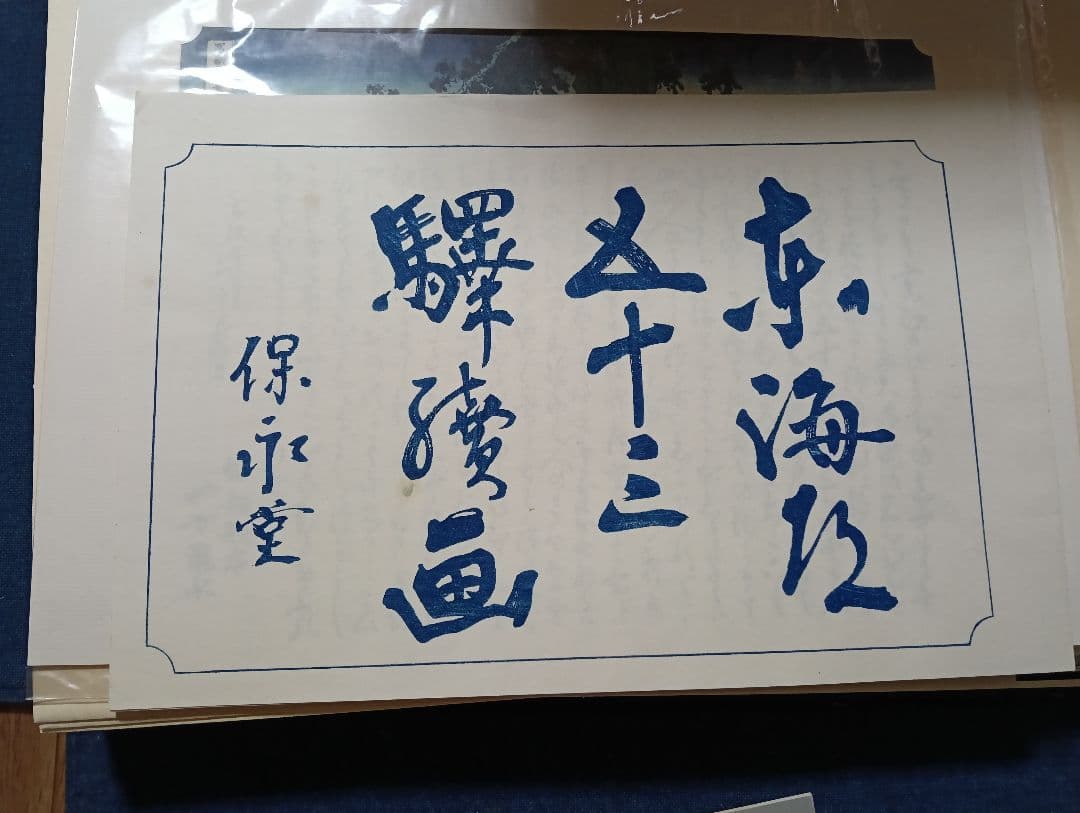 东海道
五十三
驛續画
保永堂